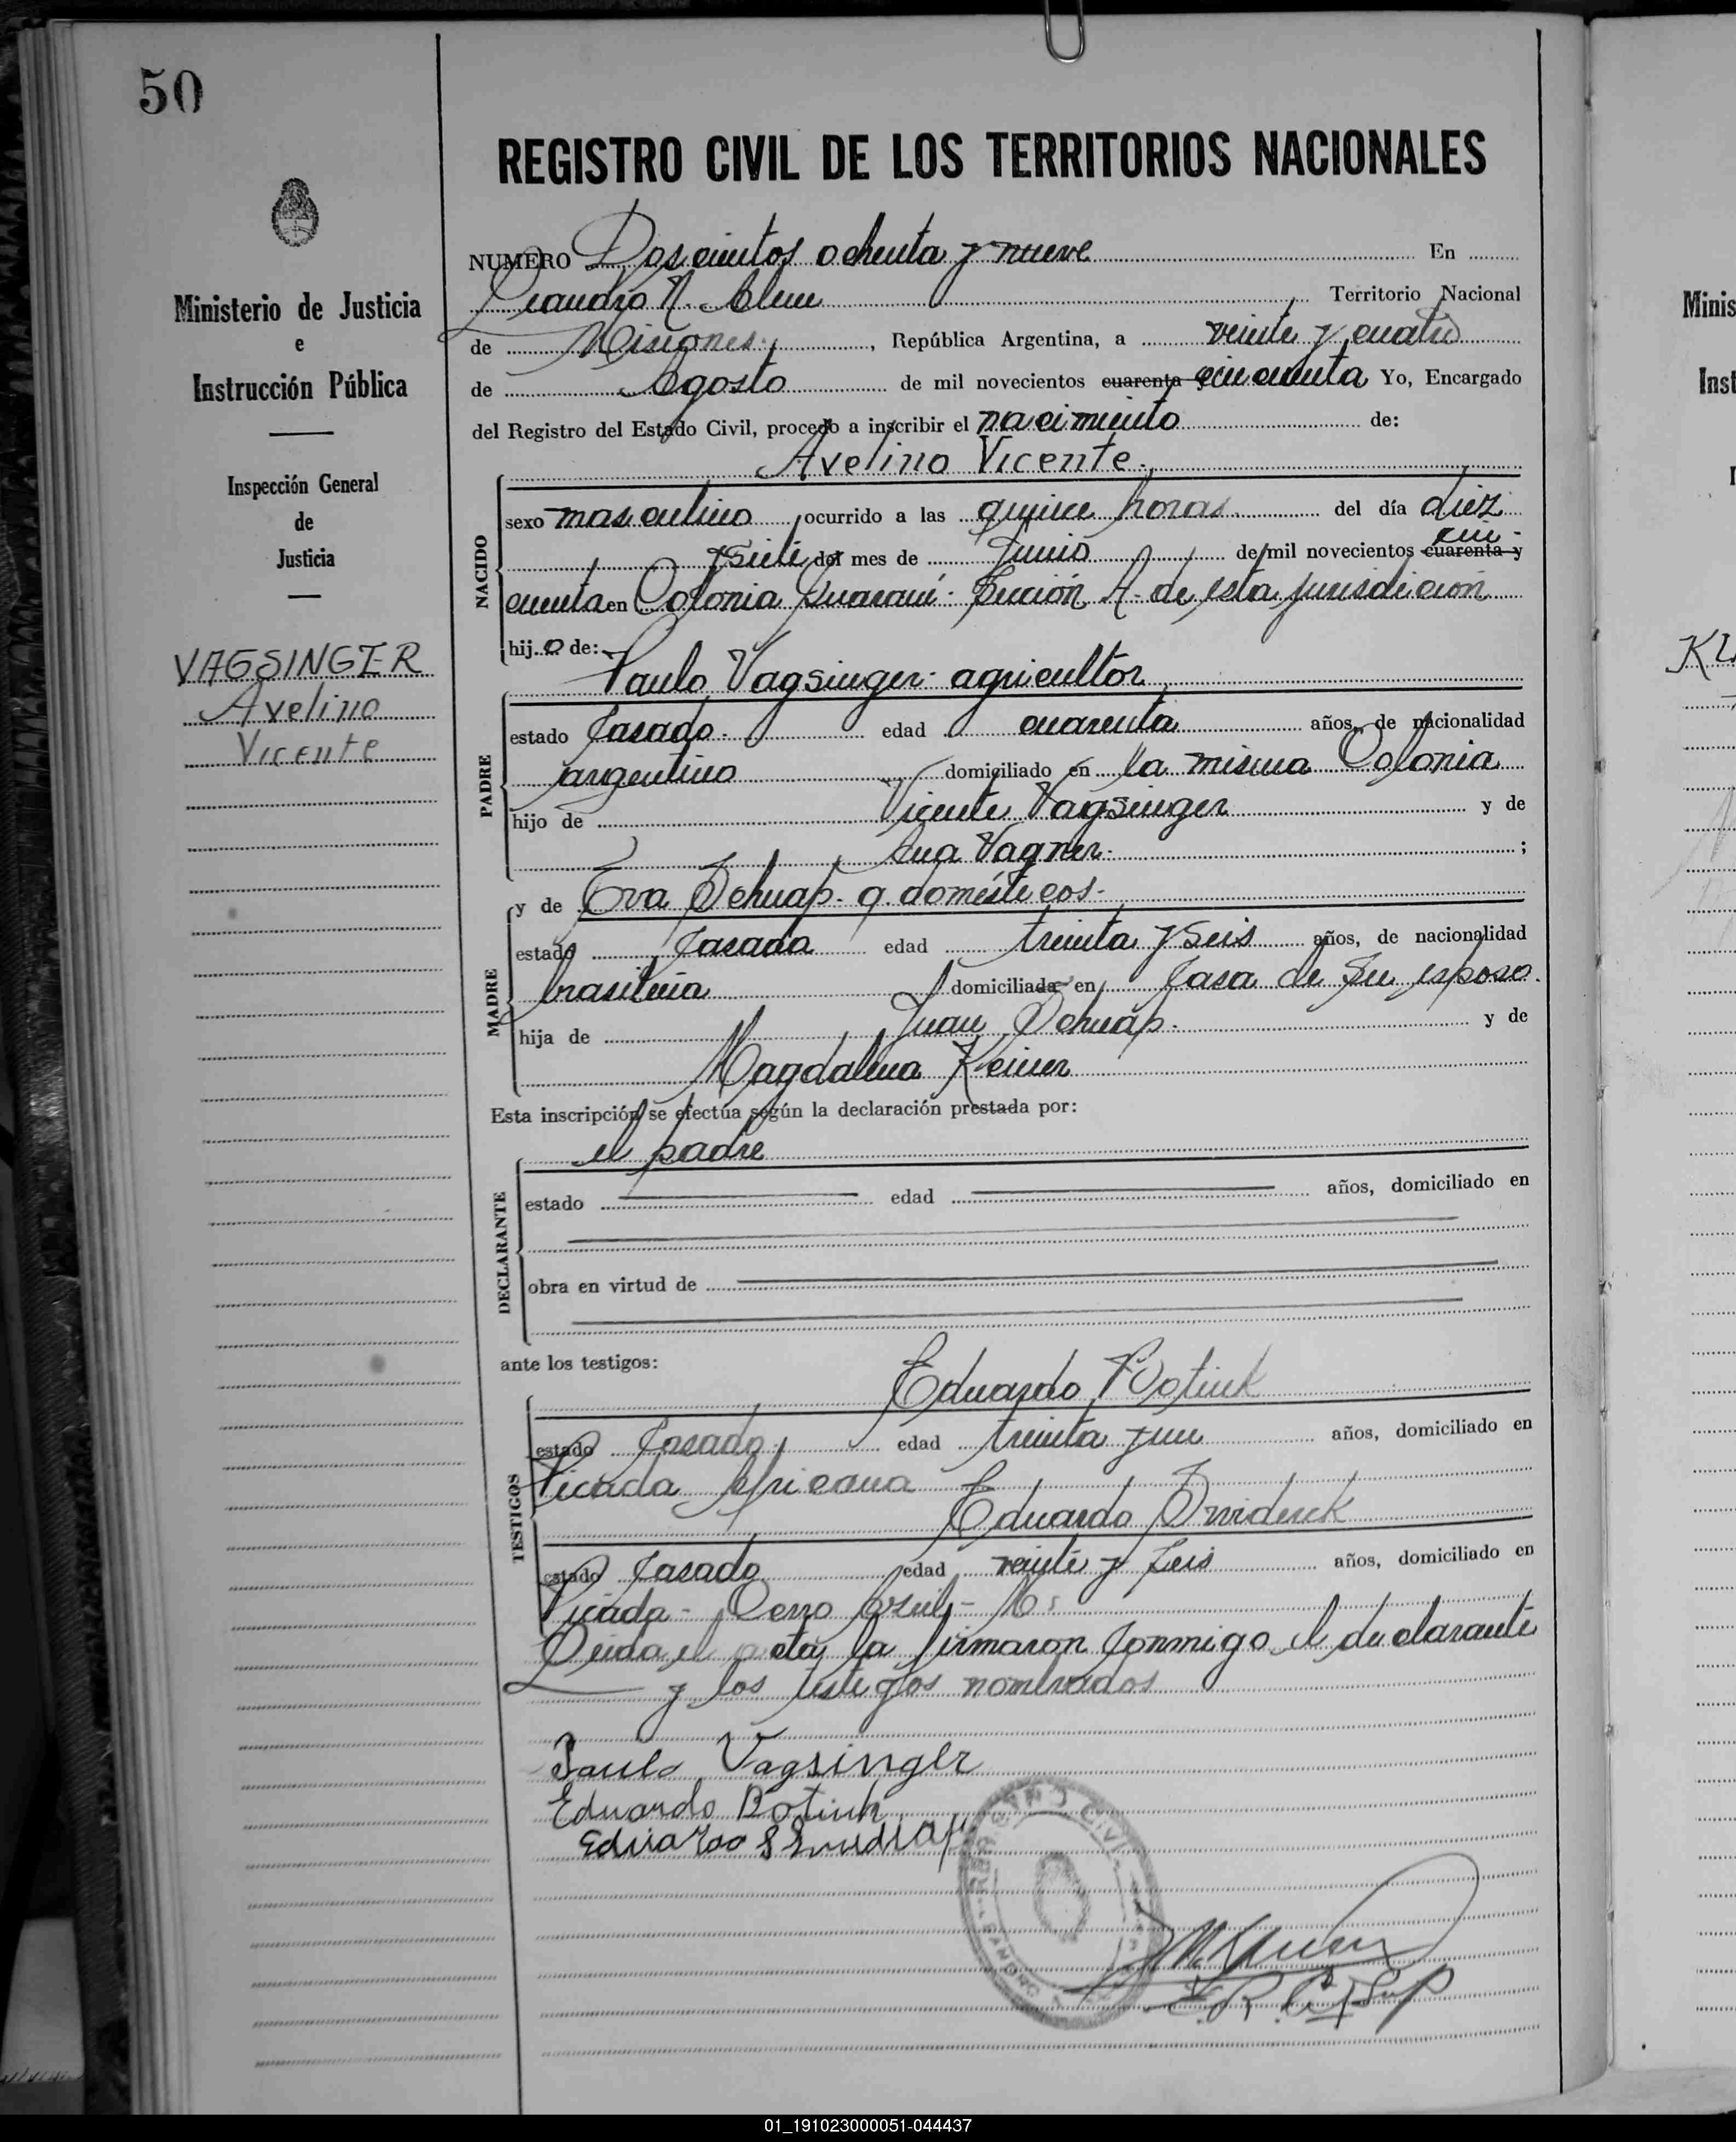 50
REGISTRO CIVIL DE LOS TERRITORIOS NACIONALES
Ministerio de Justicia
e
Instrucción Pública
Inspección General
de
Justicia
VAGSINGER
Avelino
Vicente
NUMERO Doscientos ochenta y nueve En
Leandro N. Alem Territorio Nacional
de Misiones, República Argentina, a veinte y cuatro
de Agosto de mil novecientos cuarenta y cincuenta Yo, Encargado
del Registro del Estado Civil, procedo a inscribir el nacimiento de:
Avelino Vicente.
NACIDO
sexo masculino ocurrido a las quince horas del día diez
y siete del mes de Junio de mil novecientos cuarenta y cin-
cuenta en Colonia Guaraní- Sección A- de esta jurisdicción
hijo de:
Paulo Vagsinger- agricultor
PADRE
estado Casado. edad cuarenta años, de nacionalidad
argentino domiciliado en la misma Colonia
hijo de Vicente Vagsinger y de
Ana Vagner- ;
y de Eva Schuap- q. domésticos-
MADRE
estado Casada edad treinta y seis años, de nacionalidad
brasileña domiciliada en Casa de Su esposo.
hija de Juan Schuap. y de
Magdalena Keiner
Esta inscripción se efectúa según la declaración prestada por:
el padre
DECLARANTE
estado edad años, domiciliado en
obra en virtud de
ante los testigos:
Eduardo
TESTIGOS
estado Casado edad treinta y un años, domiciliado en
Picada Africana
Eduardo
estado Casado edad veinte y Seis años, domiciliado en
Picada- Cerro Azul-
Leida el acta, la firmaron Conmigo el declarante
y los testigos nombrados
Paulo Vagsinger
Eduardo
Eduardo
REGISTRO CIVIL
01_191023000051-044437